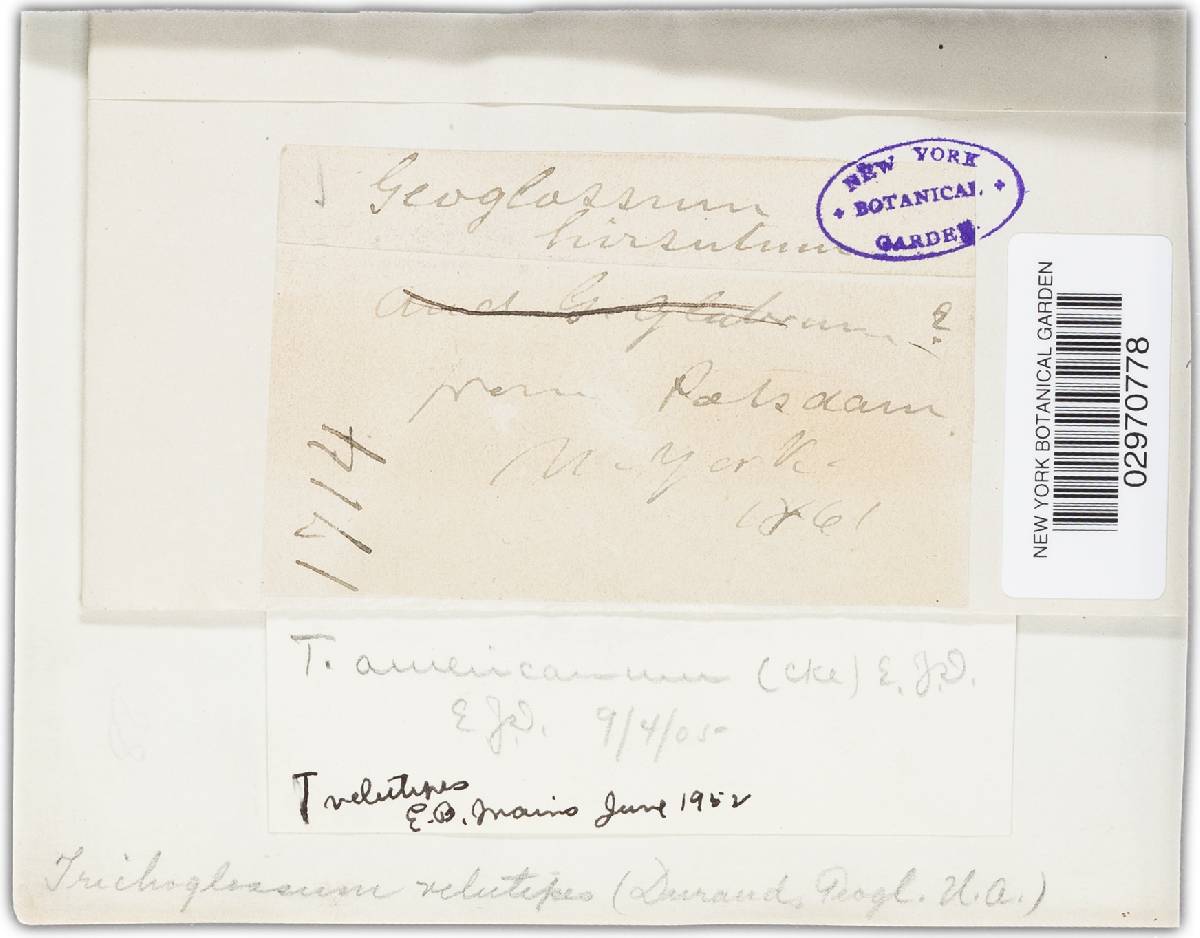 Geoglossum
hirsutum
NEW YORK
BOTANICAL
GARDEN
and G glabrum ?
from Potsdam
N-York-
1861
1714
NEW YORK BOTANICAL GARDEN
02970778
T. americanum (cke) E.J.D.
E.J.D. 9/4/05-
T velutipes
E.B. Mains June 1952
Trichoglossum velutipes (Durand, Geogl. N.A.)